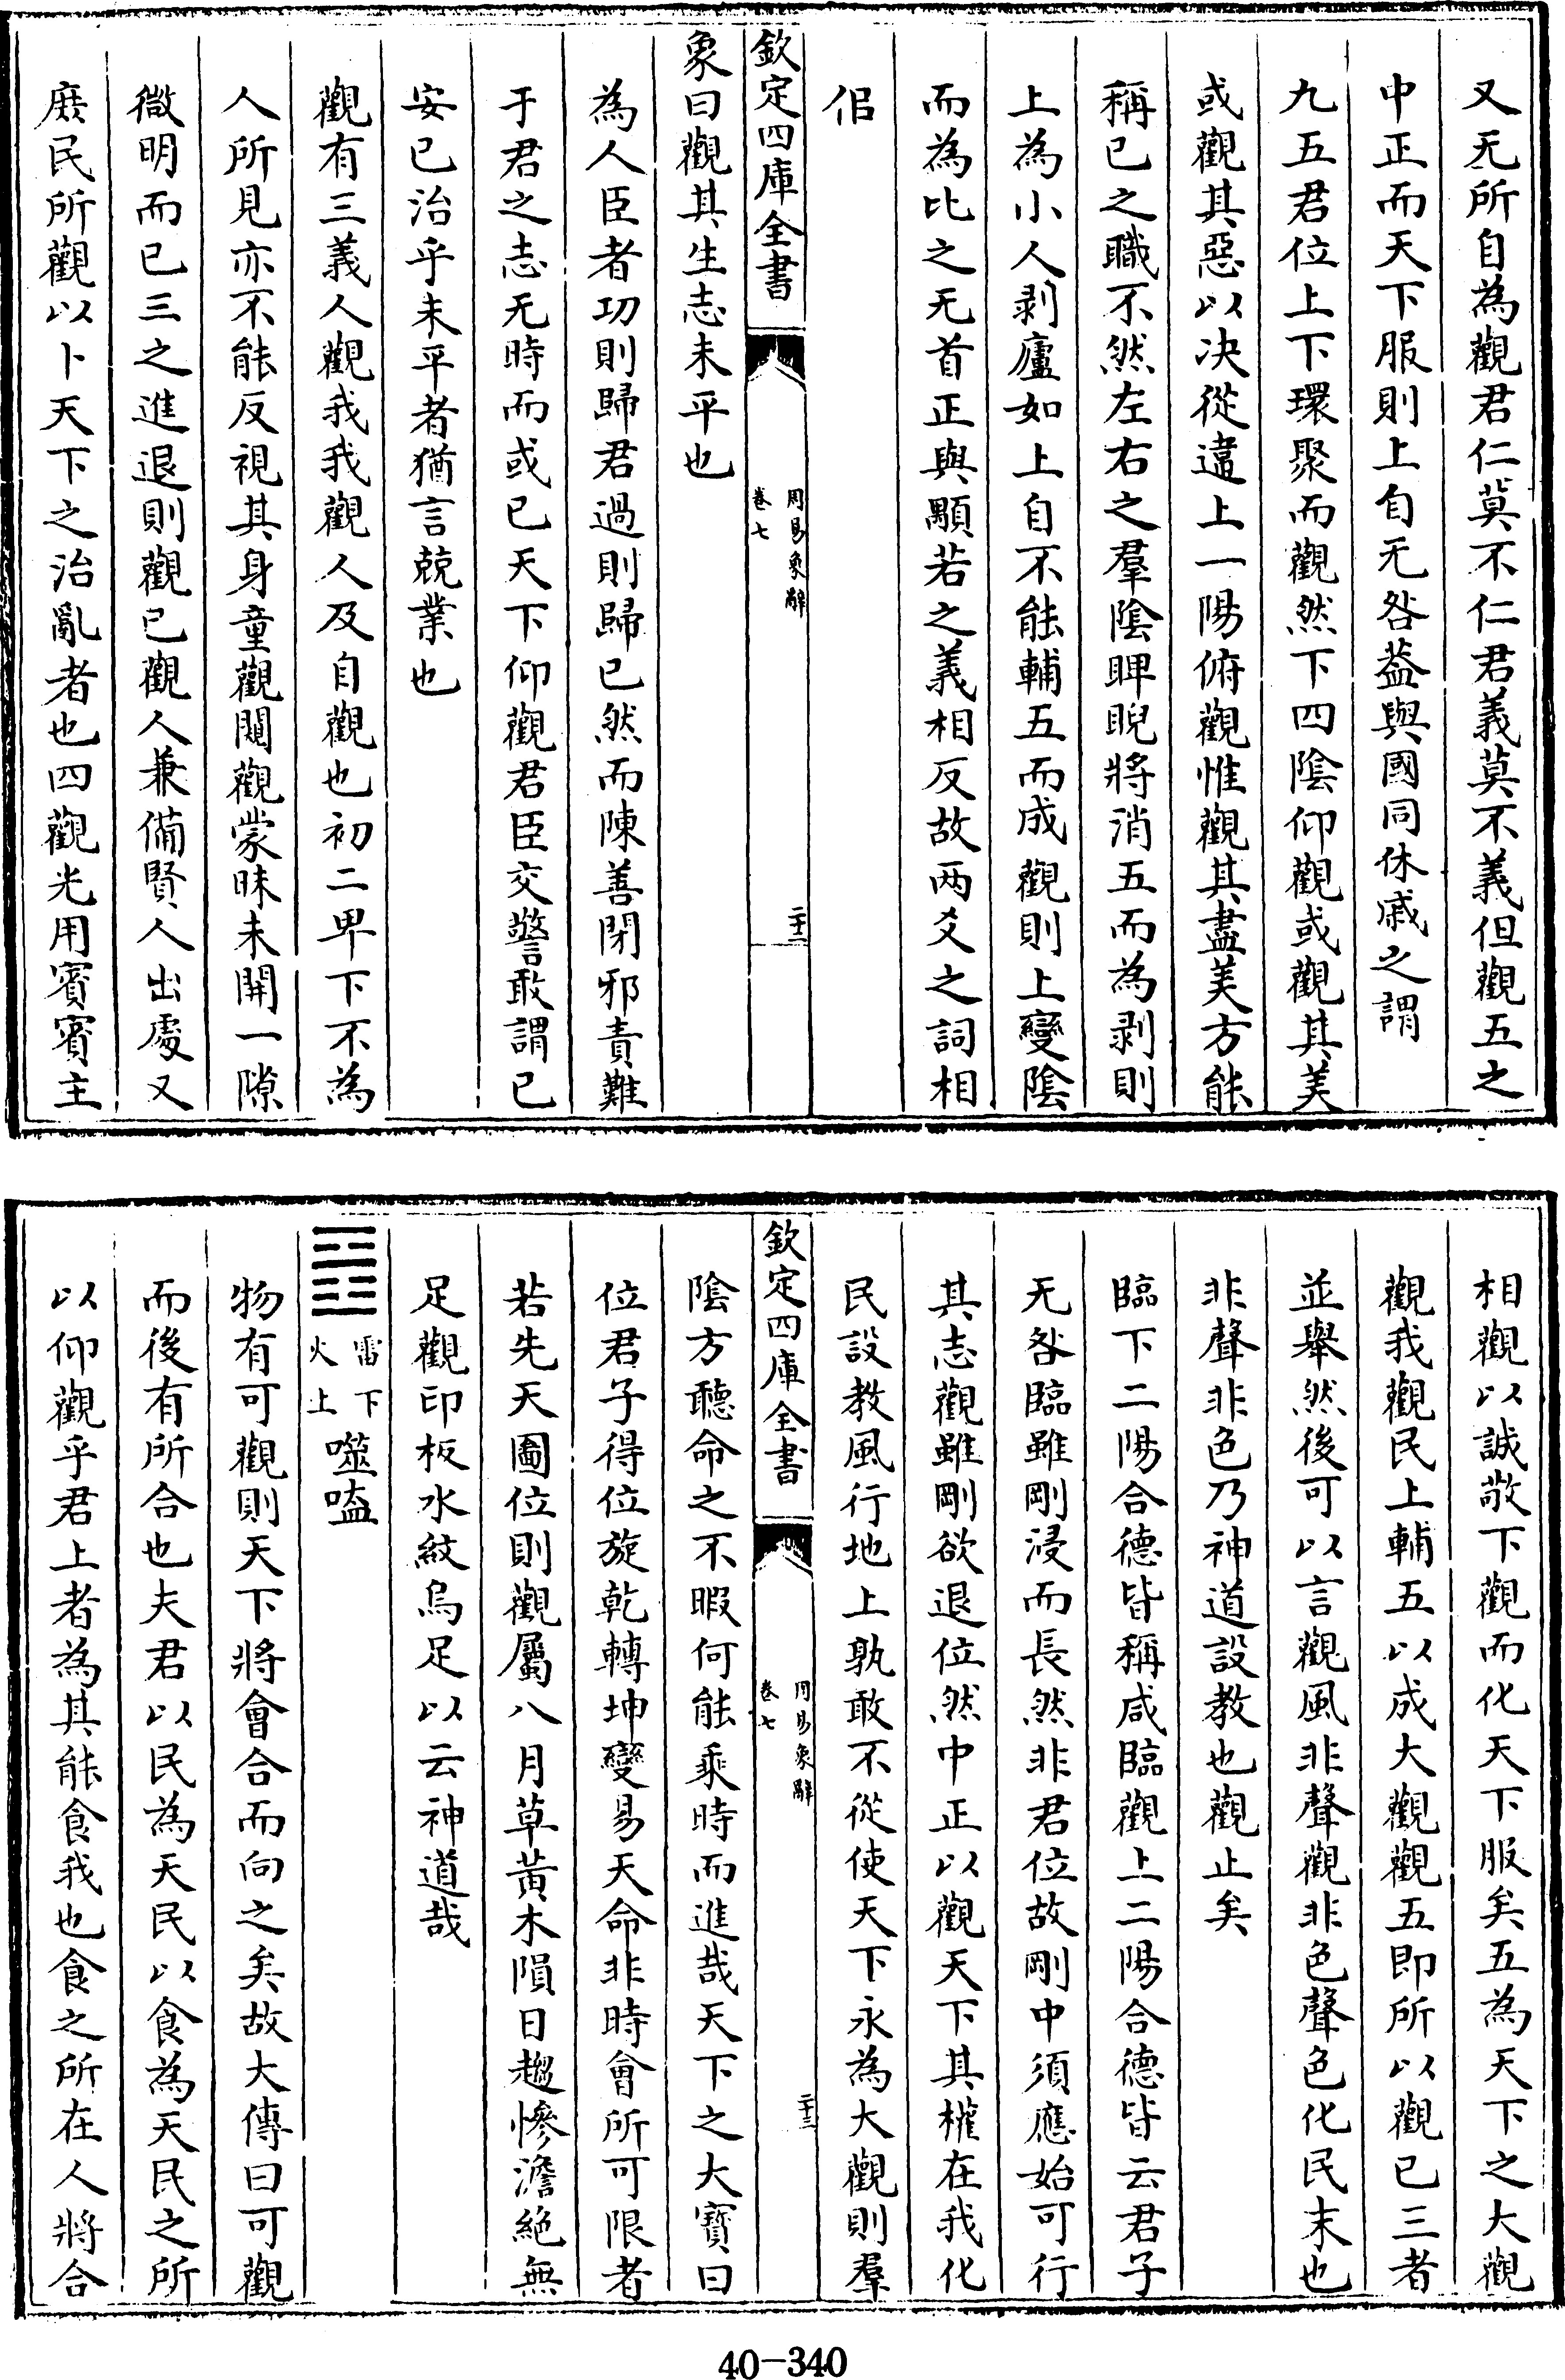 又无所自為觀君仁莫不仁君義莫不義但觀五之
中正而天下服則上自无咎葢與國同休戚之謂
九五君位上下環聚而觀然下四陰仰觀或觀其美
或觀其惡以决從違上一陽俯觀惟觀其盡美方能
稱已之職不然左右之羣陰睥睨將消五而為剥則
上為小人剥廬如上自不能輔五而成觀則上變陰
而為比之无首正與顒若之義相反故两爻之詞相
佀
欽定四庫全書
周易象辭
卷七
二十二
象曰觀其生志未平也
為人臣者功則歸君過則歸已然而陳善閉邪責難
于君之志无時而或已天下仰觀君臣交警敢謂已
安已治乎未平者猶言兢業也
觀有三義人觀我我觀人及自觀也初二卑下不為
人所見亦不能反視其身童觀闚觀蒙昧未開一隙
微明而已三之進退則觀已觀人兼備賢人出處又
庶民所觀以卜天下之治亂者也四觀光用賓賓主
相觀以誠敬下觀而化天下服矣五為天下之大觀
觀我觀民上輔五以成大觀觀五即所以觀已三者
並舉然後可以言觀風非聲觀非色聲色化民末也
非聲非色乃神道設教也觀止矣
臨下二陽合德皆稱咸臨觀上二陽合德皆云君子
无咎臨雖剛浸而長然非君位故剛中須應始可行
其志觀雖剛欲退位然中正以觀天下其權在我化
民設教風行地上孰敢不從使天下永為大觀則羣
欽定四庫全書
周易象辭
卷七
二十三
陰方聽命之不暇何能乘時而進哉天下之大寶曰
位君子得位旋乾轉坤變易天命非時會所可限者
若先天圖位則觀屬八月草黃木隕日趨慘澹絕無
足觀印板水紋烏足以云神道哉
䷔
雷下
火上
噬嗑
物有可觀則天下將會合而向之矣故大傳曰可觀
而後有所合也夫君以民為天民以食為天民之所
以仰觀乎君上者為其能食我也食之所在人將合
40-340